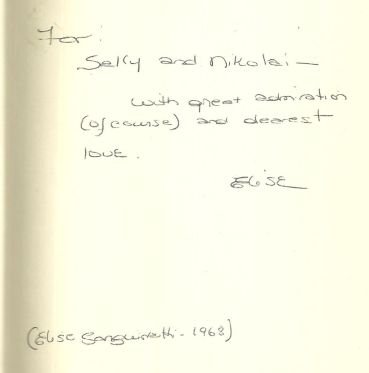 For:
Sally and Nikolai —
with great admiration
(of course) and dearest
love.
Elise
(Elise Sanguinetti - 1968)